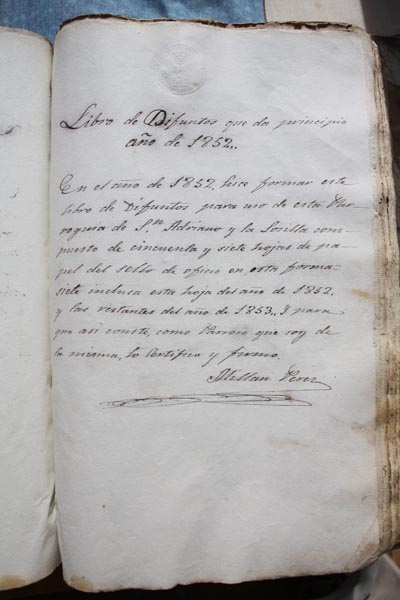 Libro de Difuntos que da principio
año de 1852,,
En el año de 1852, hice formar este
libro de Difuntos para uso de esta Par-
roquia de S.n Adriano y la Lorilla com-
puesto de cincuenta y siete hojas de pa-
pel del sello de oficio en esta forma=
siete inclusa esta hoja del año de 1852,
y las restantes del año de 1853,, Y para
que asi conste, como Parroco que soy de
la misma, lo Certifico y firmo.
Perez